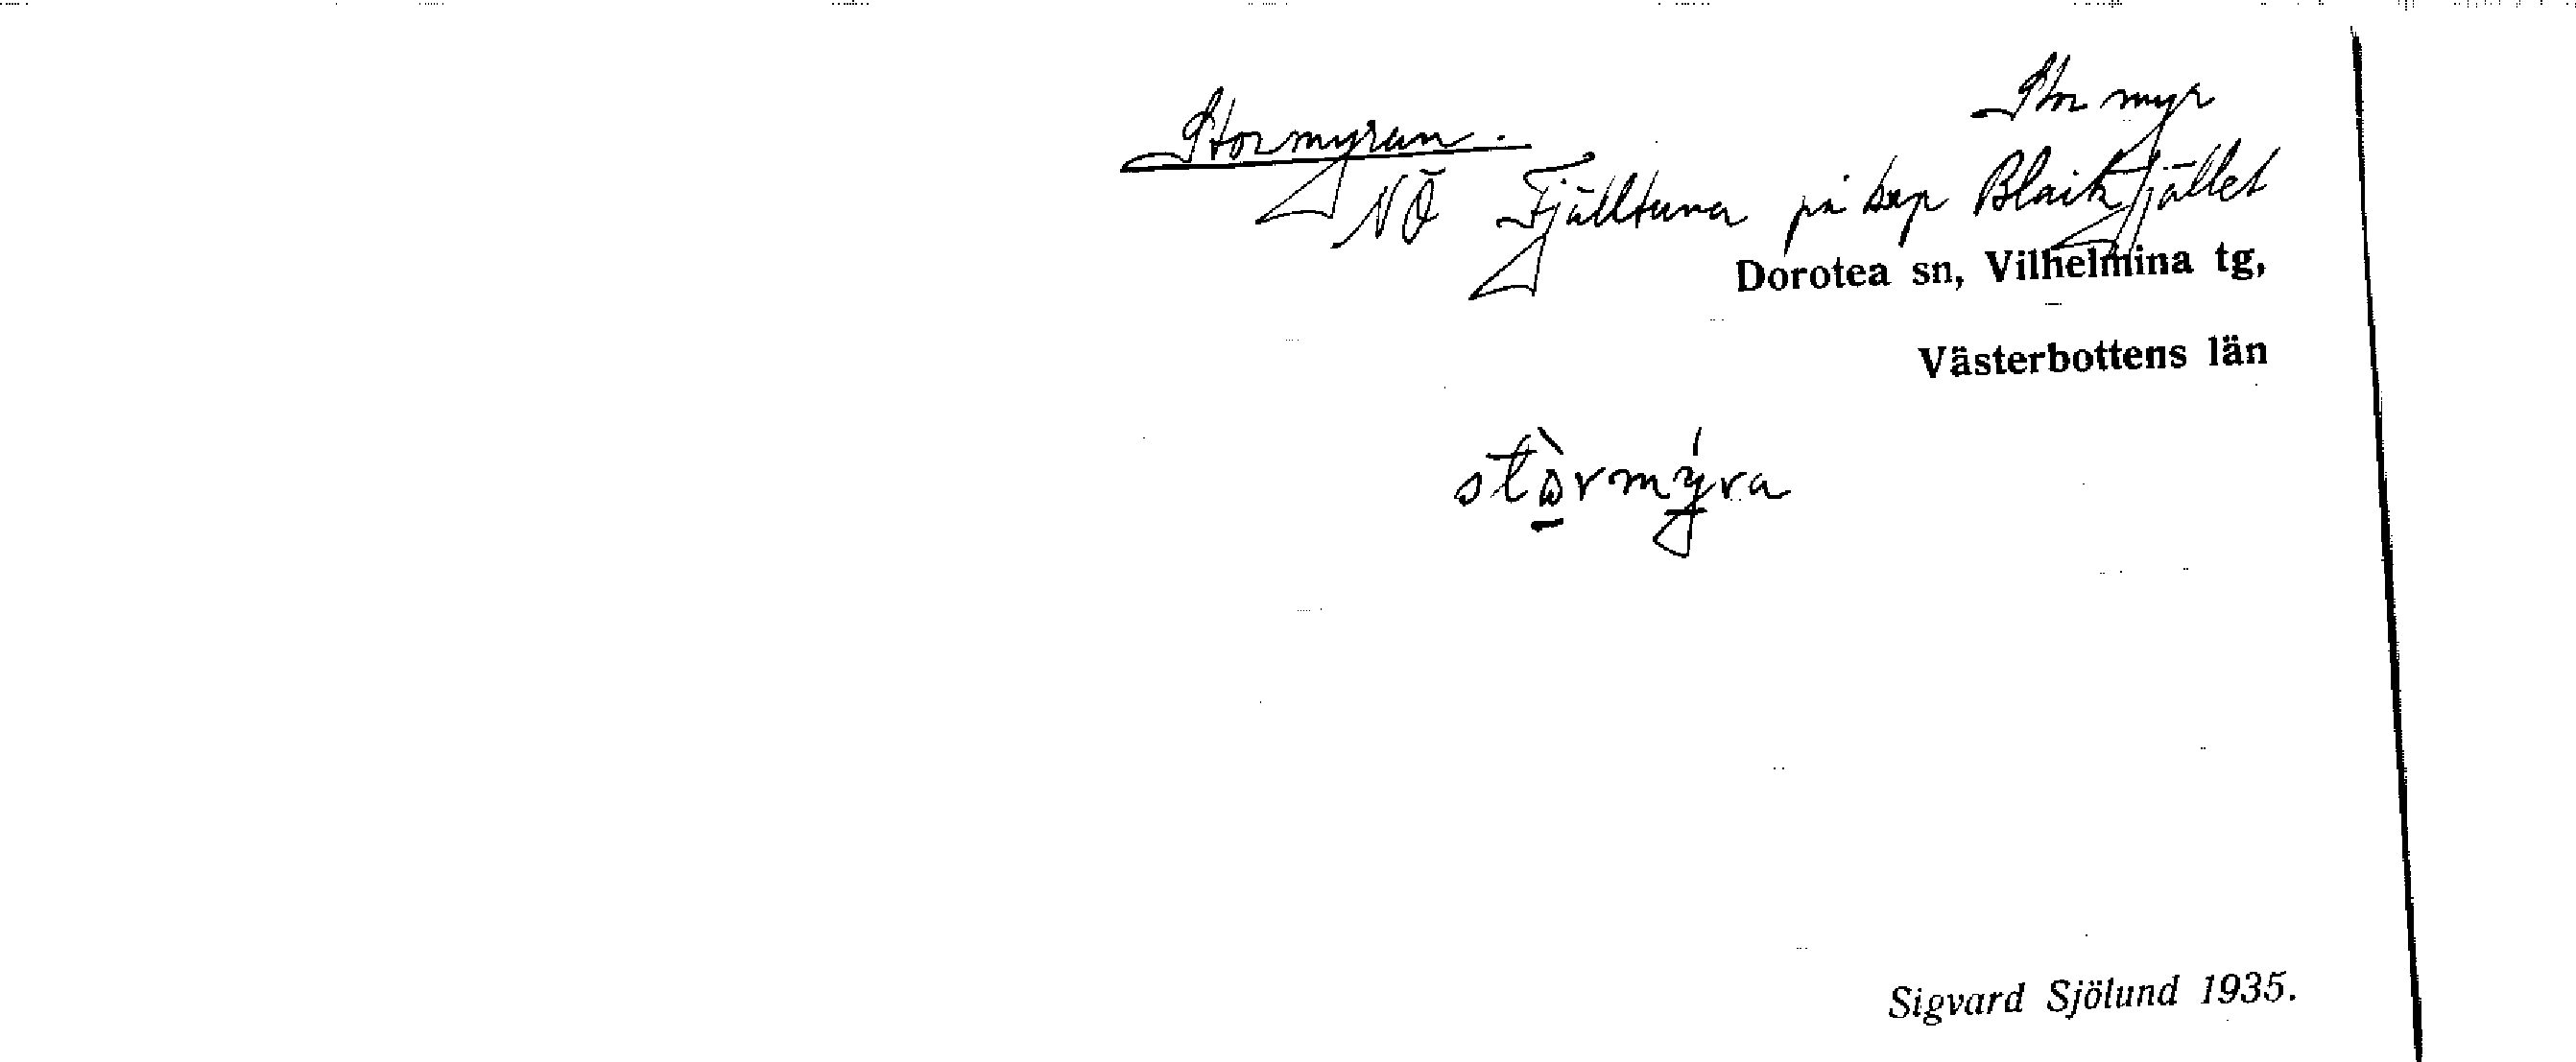 Stor myr
Stormyran.
NÖ Fjälltuna på kap Blaikfjället
Dorotea sn, Vilhelmina tg,
Västerbottens län
stòrmýra
Sigvard Sjölund 1935.